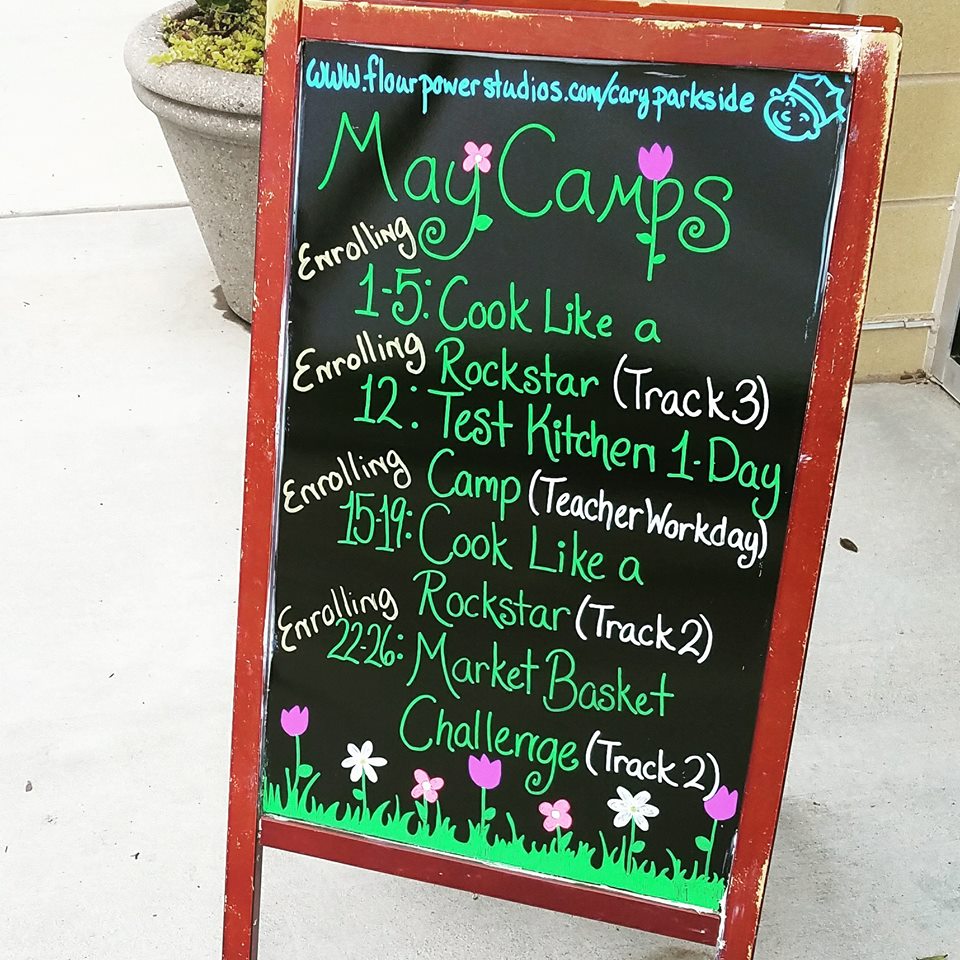 www.flourpowerstudios.com/caryparkside
May Camps
Enrolling
1-5: Cook Like a
Enrolling Rockstar (Track 3)
12: Test Kitchen 1-Day
Enrolling Camp (Teacher Workday)
15-19: Cook Like a
Enrolling Rockstar (Track 2)
22-26: Market Basket
Challenge (Track 2)